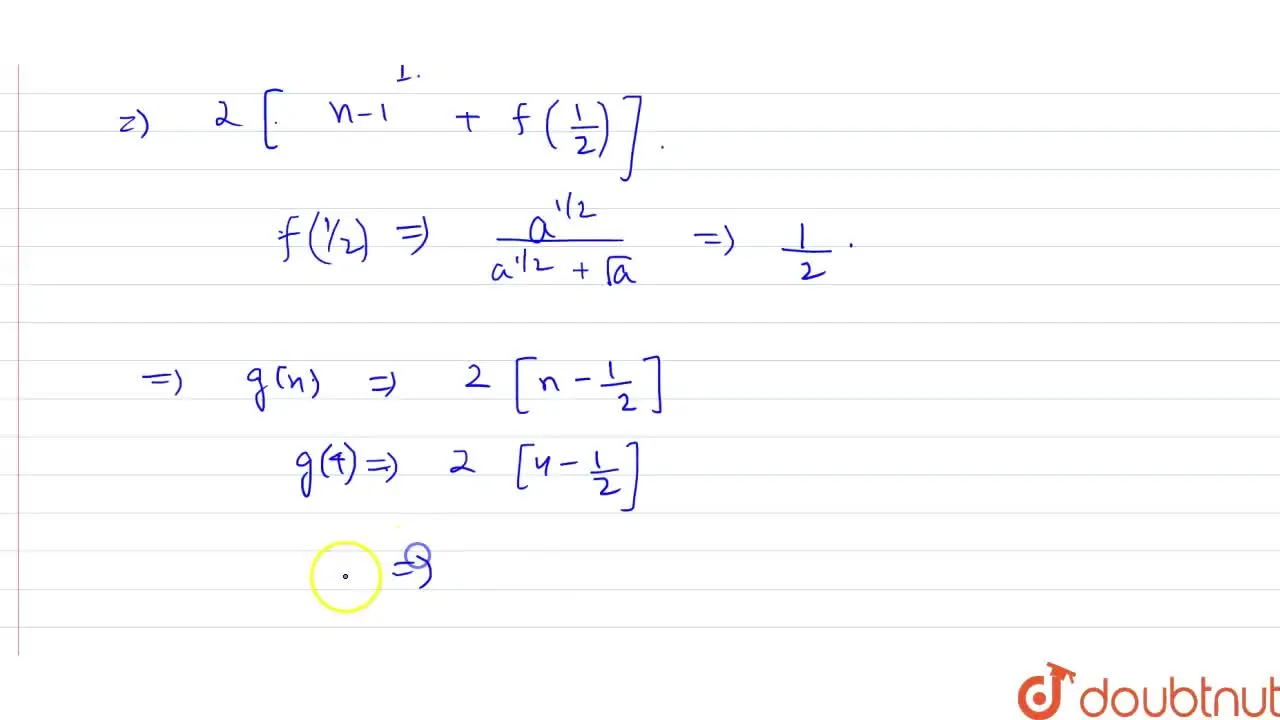 1.
=) 2 [ n-1 + f(1/2) ].
f(1/2) => a^1/2 / (a^1/2 + √a) => 1/2 .
=> g(n) => 2 [n - 1/2]
g(4) => 2 [4 - 1/2]
=>
doubtnut